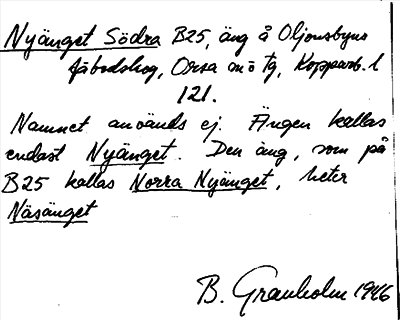 Nyänget Södra B25, äng å Oljonsbyns
fäbodskog, Orsa sn o tg, Kopparb. l
121.
Namnet används ej. Ängen kallas
endast Nyänget. Den äng, som på
B25 kallas Norra Nyänget, heter
Näsänget
B. Granholm 1946